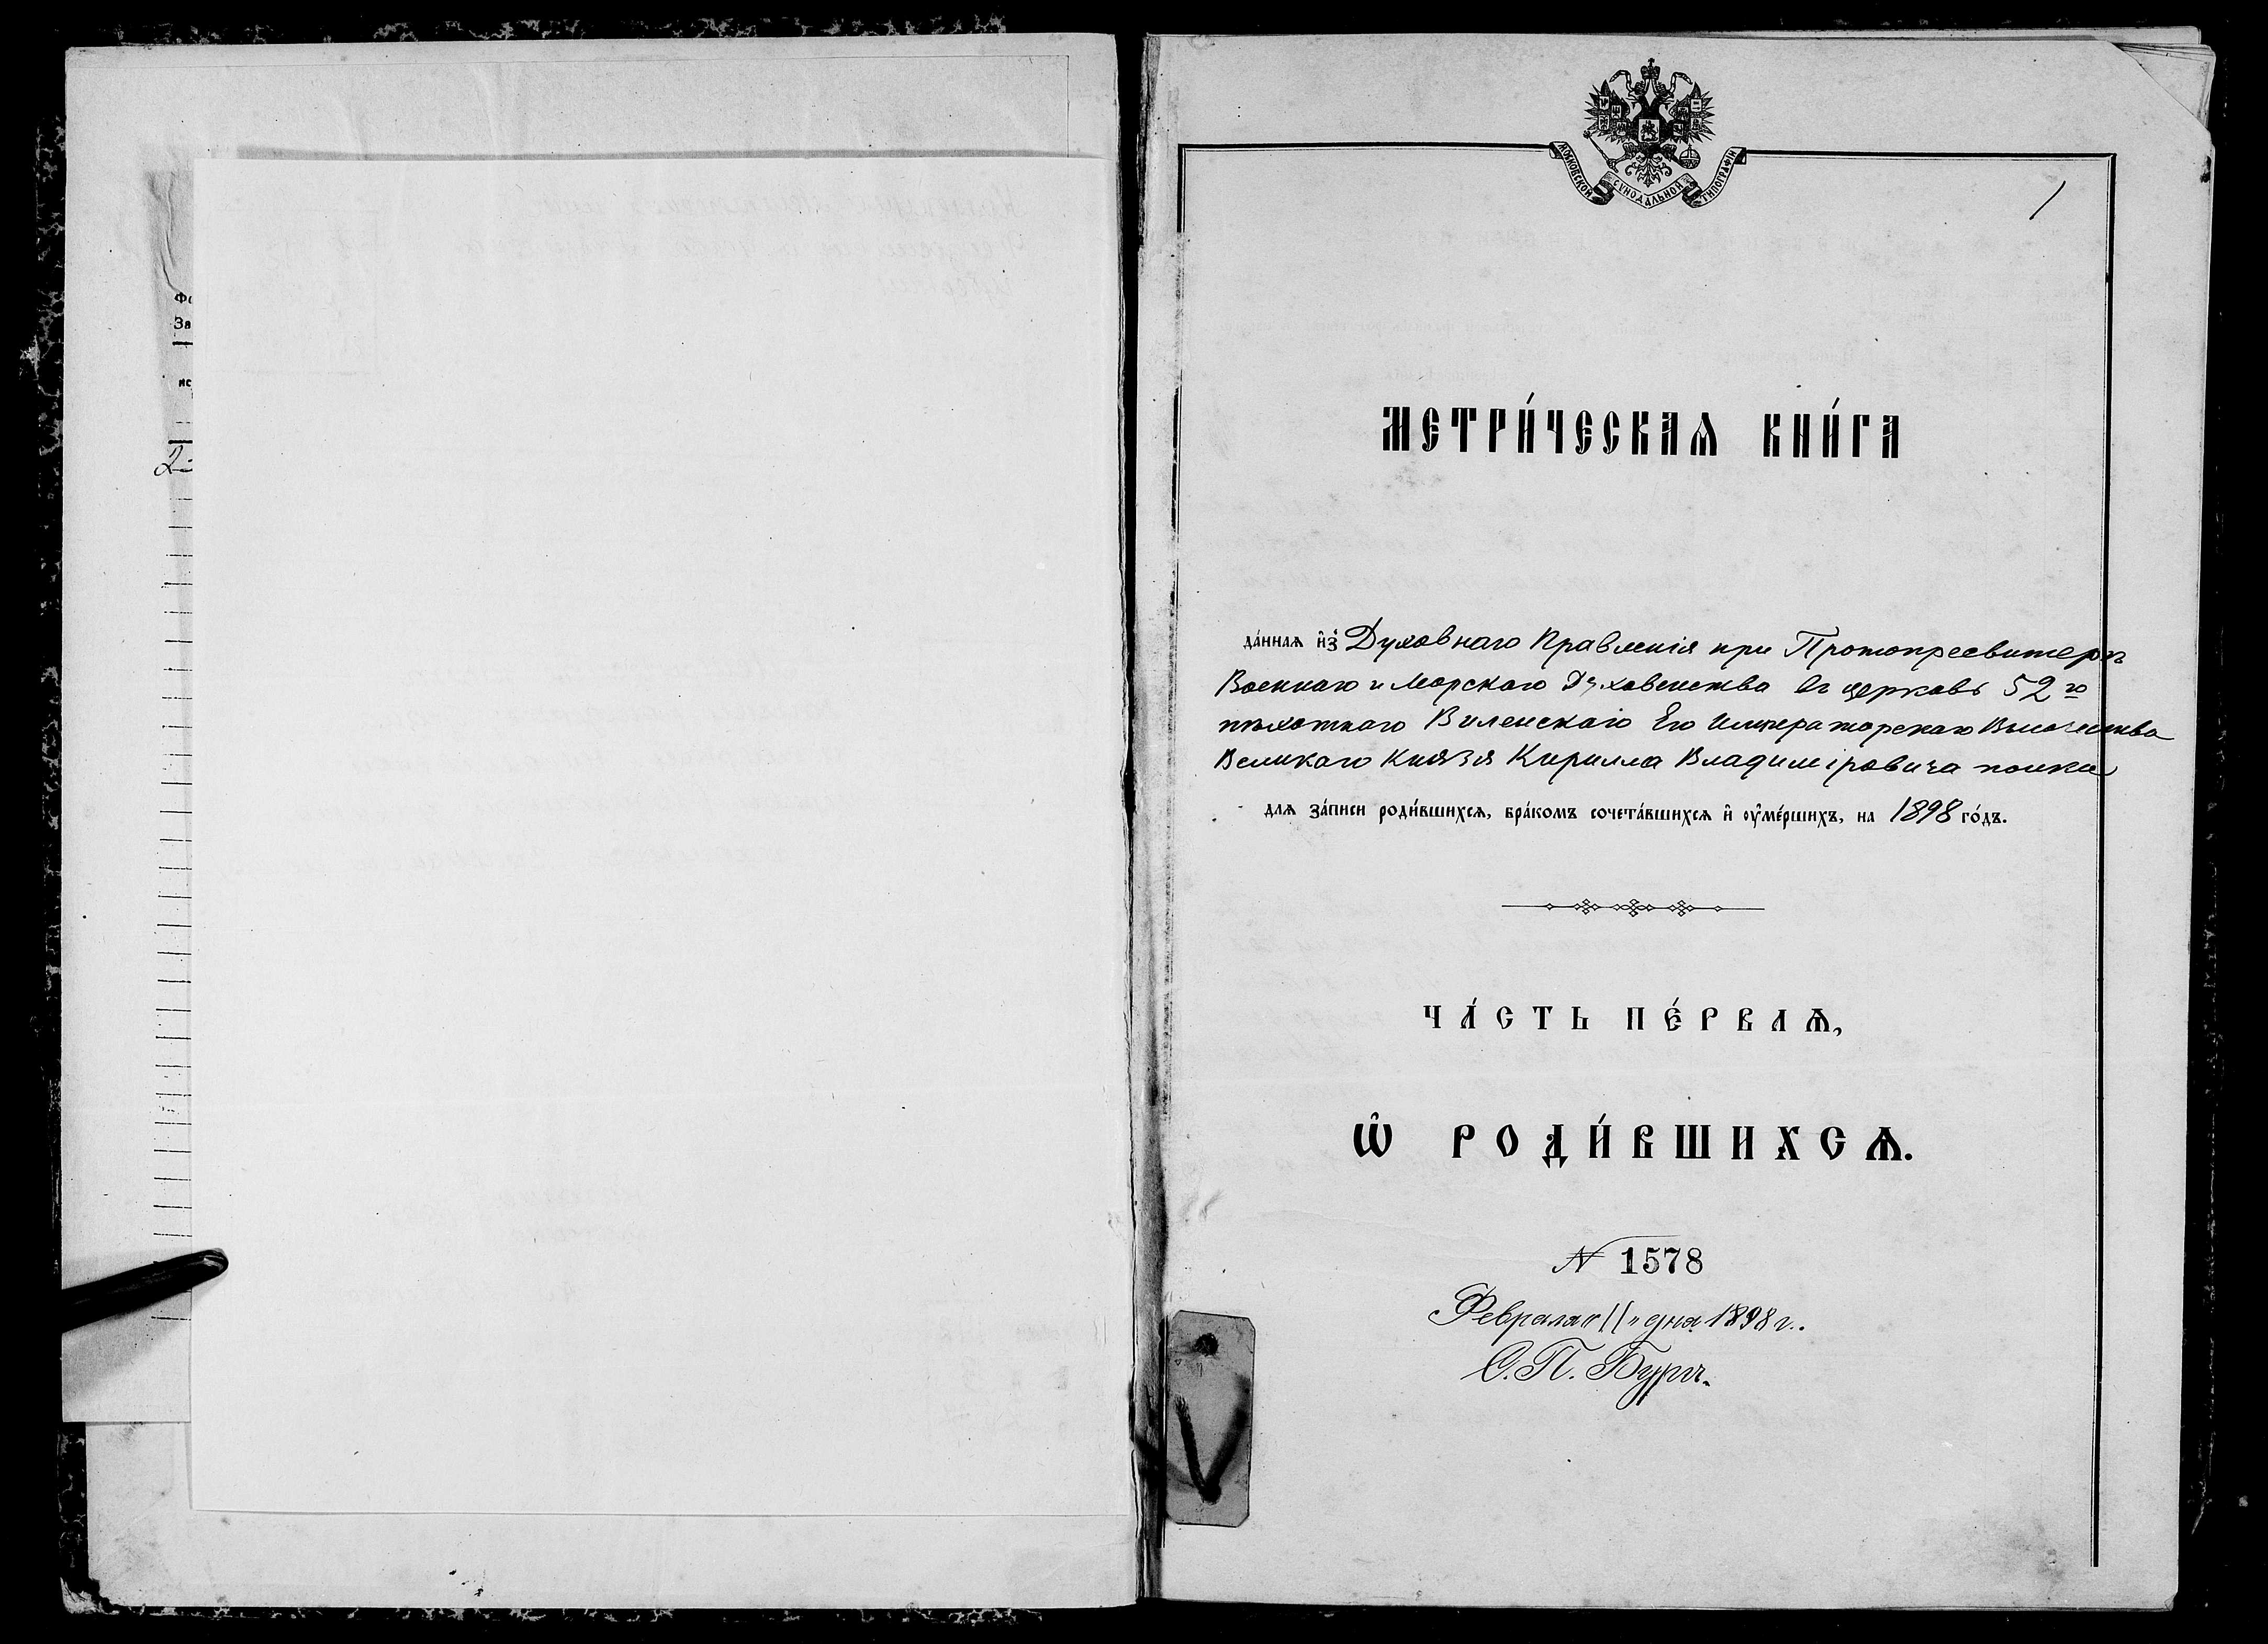 Фо
За
ис
2
МОСКОВСКОЙ СѴНОДАЛЬНОЙ ТИПОГРАФІИ
1
МЕТРИ́ЧЕСКАѦ КНИ́ГА
да́ннаѧ и҆зъ Духовнаго Правленія при Протопресвитерѣ
Военнаго и Морскаго Духовенства въ церковь 52го
пѣхотнаго Виленскаго Его Императорскаго Высочества
Великаго Князя Кирилла Владиміровича полка
длѧ за́писи роди́вшихсѧ, бра́комъ сочета́вшихсѧ и҆ ᲂу҆ме́ршихъ, на 1898 го́дъ.
ЧА́СТЬ ПЕ́РВАѦ,
Ѡ҆ РОДИ́ВШИХСѦ.
№ 1578
Февраля „11„ дня 1898 г.
С. П. Бургъ.